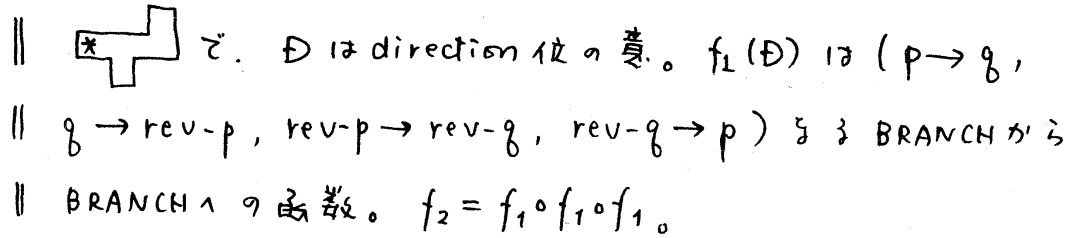 ‖ * で. Đ は direction 位の意。 f₁(Đ) は (p→q,
‖ q→rev-p, rev-p→rev-q, rev-q→p) なる BRANCHから
‖ BRANCHへの函数。 f₂=f₁∘f₁∘f₁。